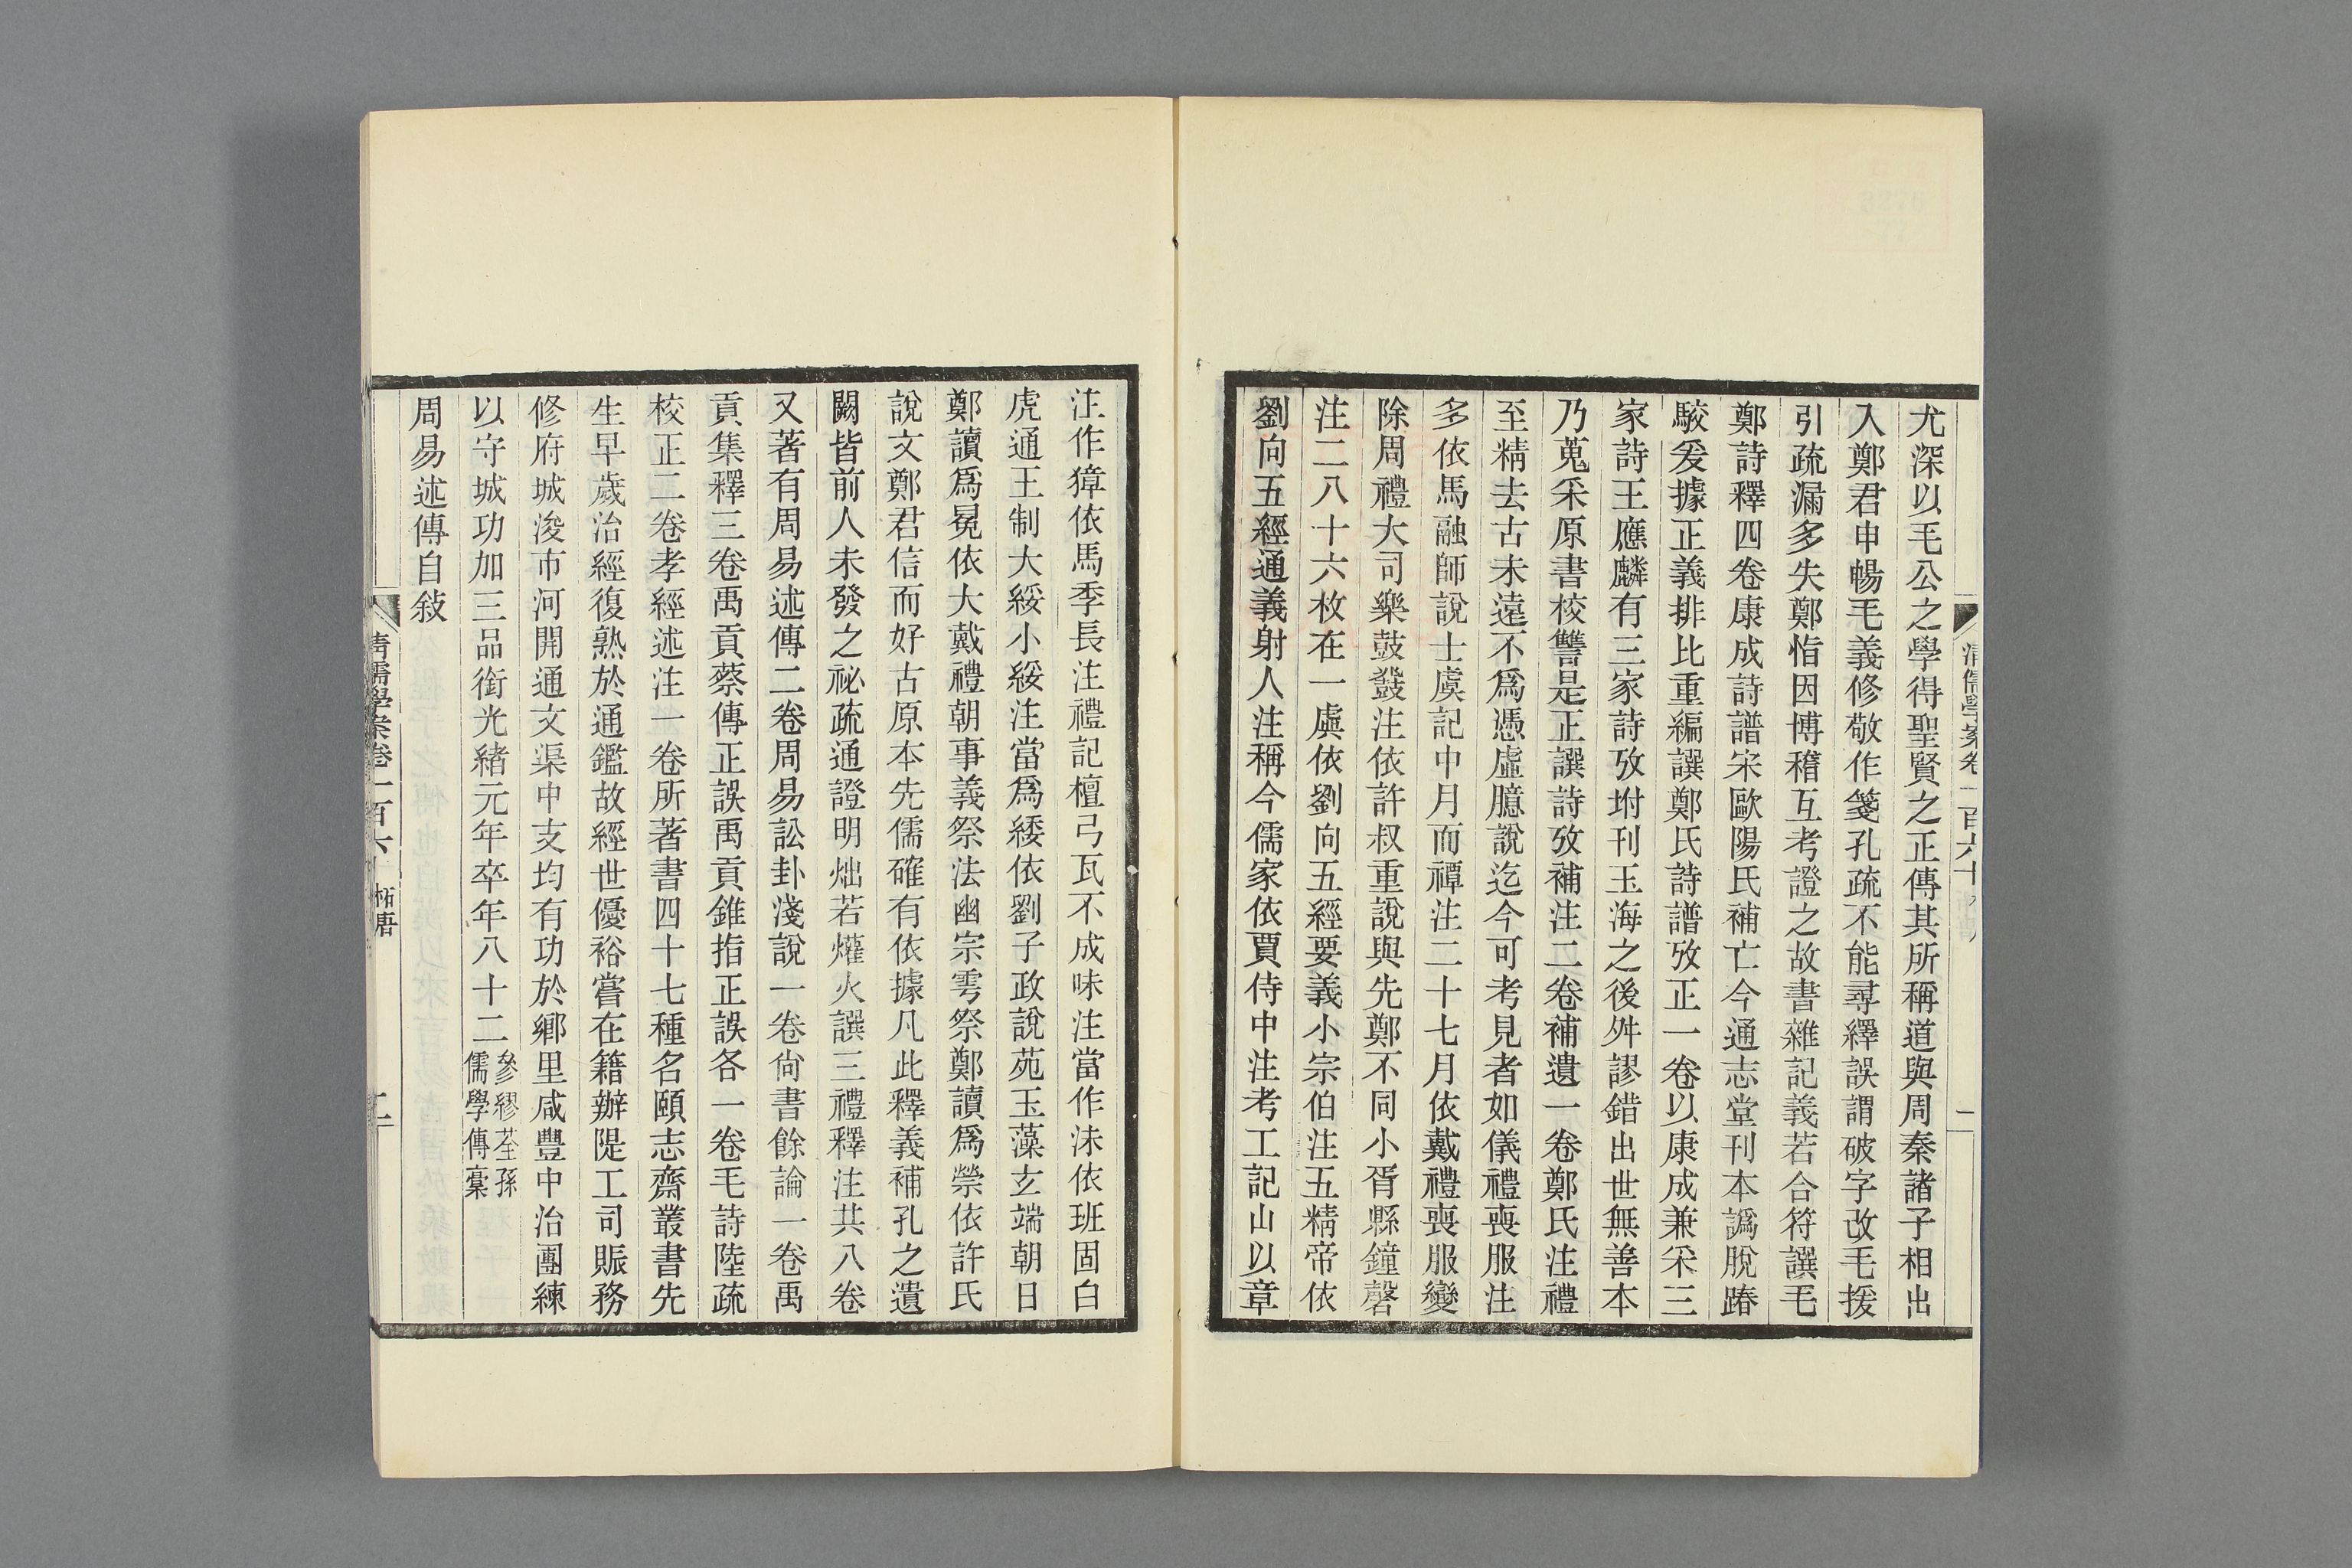 尤深以毛公之學得聖賢之正傳其所稱道與周秦諸子相出
入鄭君申暢毛義修敬作箋孔疏不能尋繹誤謂破字改毛援
引疏漏多失鄭恉因博稽互考證之故書雜記義若合符譔毛
鄭詩釋四卷康成詩譜宋歐陽氏補亡今通志堂刊本譌脫踳
駮爰據正義排比重編譔鄭氏詩譜攷正一卷以康成兼采三
家詩王應麟有三家詩攷坿刊玉海之後舛謬錯出世無善本
乃蒐采原書校讐是正譔詩攷補注二卷補遺一卷鄭氏注禮
至精去古未遠不爲憑虛臆說迄今可考見者如儀禮喪服注
多依馬融師說士虞記中月而禫注二十七月依戴禮喪服變
除周禮大司樂鼓鼗注依許叔重說與先鄭不同小胥縣鐘磬
注二八十六枚在一虡依劉向五經要義小宗伯注五精帝依
劉向五經通義射人注稱今儒家依賈侍中注考工記山以章
注作獐依馬季長注禮記檀弓瓦不成味注當作沬依班固白
虎通王制大綏小綏注當爲緌依劉子政說苑玉藻玄端朝日
鄭讀爲冕依大戴禮朝事義祭法幽宗雩祭鄭讀爲禜依許氏
說文鄭君信而好古原本先儒確有依據凡此釋義補孔之遺
闕皆前人未發之祕疏通證明爁若爟火譔三禮釋注共八卷
又著有周易述傳二卷周易訟卦淺說一卷尙書餘論一卷禹
貢集釋三卷禹貢蔡傳正誤禹貢錐指正誤各一卷毛詩陸疏
校正二卷孝經述注一卷所著書四十七種名頤志齋叢書先
生早歲治經復熟於通鑑故經世優裕嘗在籍辦隄工司賑務
修府城浚市河開通文渠中支均有功於鄕里咸豐中治團練
以守城功加三品銜光緖元年卒年八十二參繆荃孫儒學傳稾
周易述傳自敍
清儒學案卷一百六十 柘唐 二